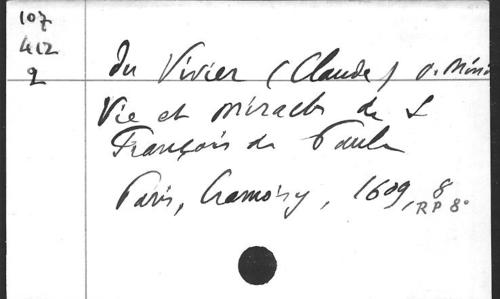 107
412
2
Du Vivier (Claude) o. Mini
Vie et miracles de S
François de Paule
Paris, Cramoisy, 1609, 8
RP 8°